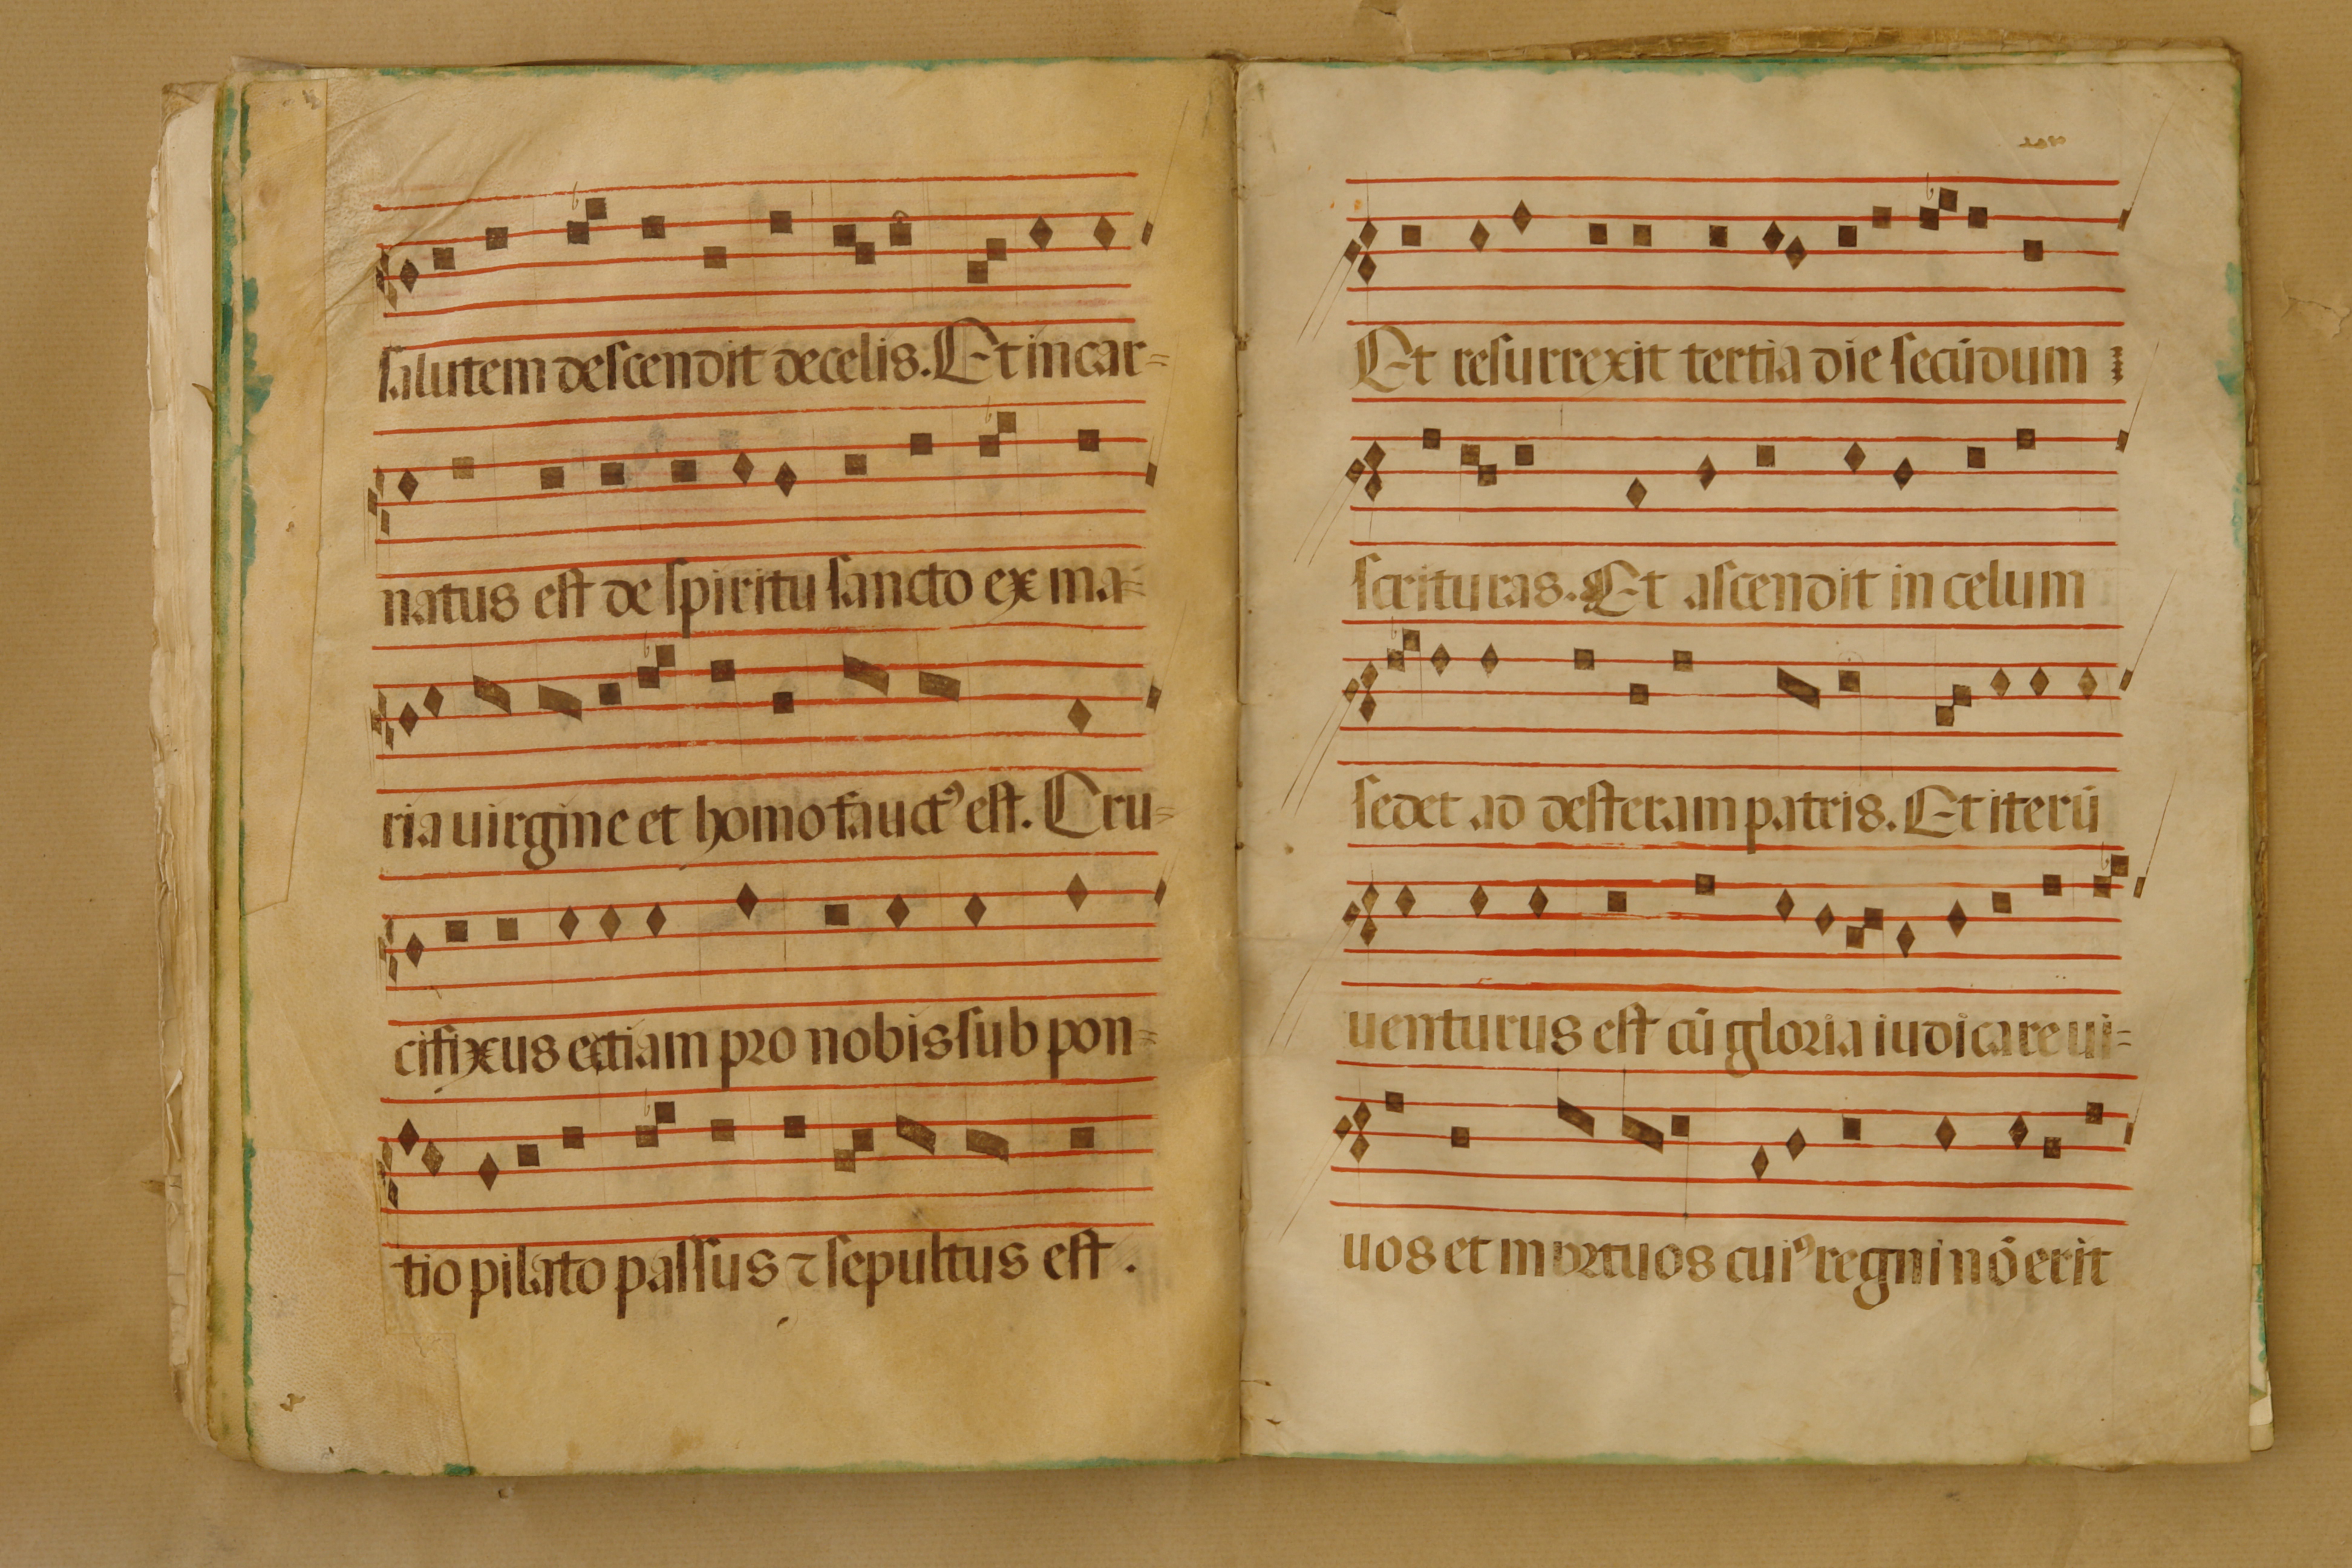 salutem descendit de celis. Et in car=
natus est de spiritu sancto ex ma=
ria uirgine et homo fauctꝰ est. Cru=
cifixus ectiam pro nobis sub pon=
tio pilato passus ⁊ sepultus est.
Et resurrexit tertia die secūdum
scrituras. Et ascendit in celum
sedet ad desteram patris. Et iterū
uenturus est cū gloria iudicare ui=
uos et mortuos cuiꝰ regni nō erit